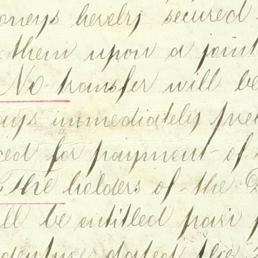 oneys hereby secured
them upon a joint
No transfer will be
ays immediately pre
ed for payment of
The holders of the D
ll be entitled pari p
dated the